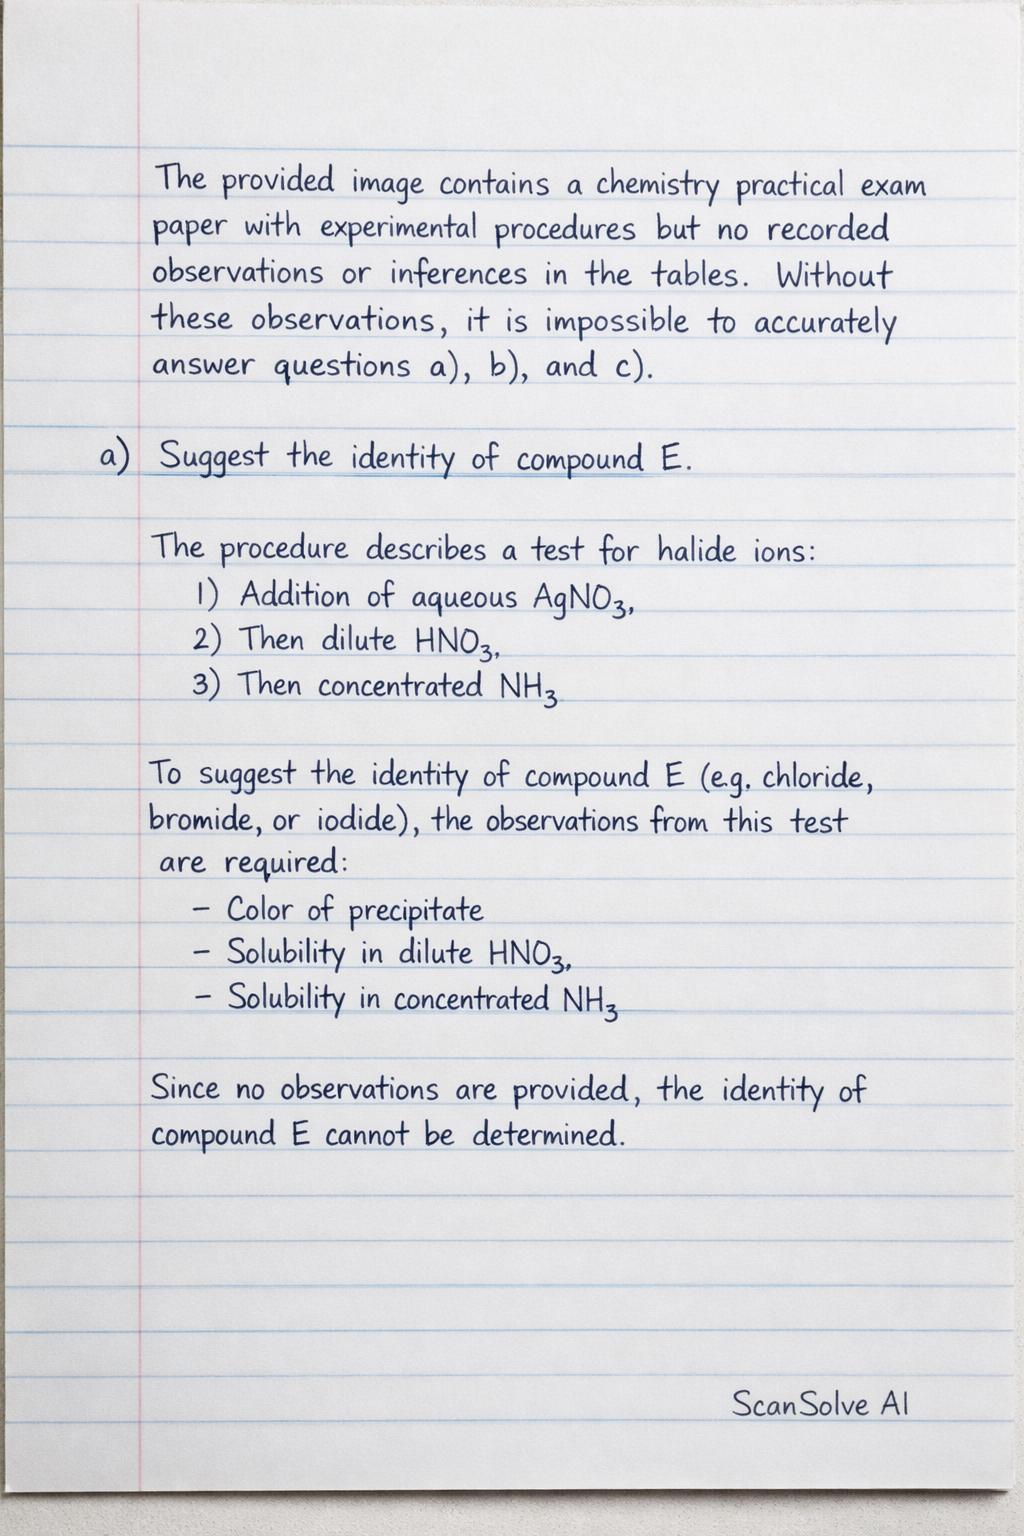 The provided image contains a chemistry practical exam
paper with experimental procedures but no recorded
observations or inferences in the tables. Without
these observations, it is impossible to accurately
answer questions a), b), and c).
a) Suggest the identity of compound E.
The procedure describes a test for halide ions:
1) Addition of aqueous AgNO₃,
2) Then dilute HNO₃,
3) Then concentrated NH₃
To suggest the identity of compound E (e.g. chloride,
bromide, or iodide), the observations from this test
are required:
– Color of precipitate
– Solubility in dilute HNO₃,
– Solubility in concentrated NH₃
Since no observations are provided, the identity of
compound E cannot be determined.
ScanSolve AI